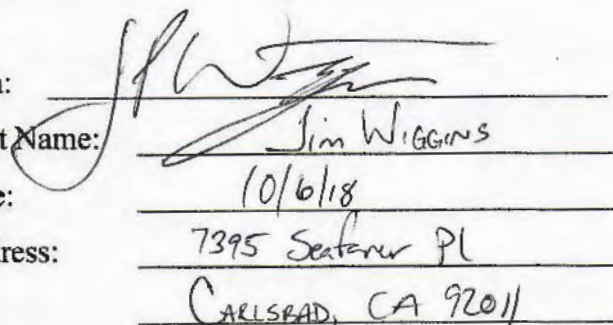 n:
t Name: Jim Wiggins
e: 10/6/18
ress: 7395 Seafarer Pl
CARLSBAD, CA 92011